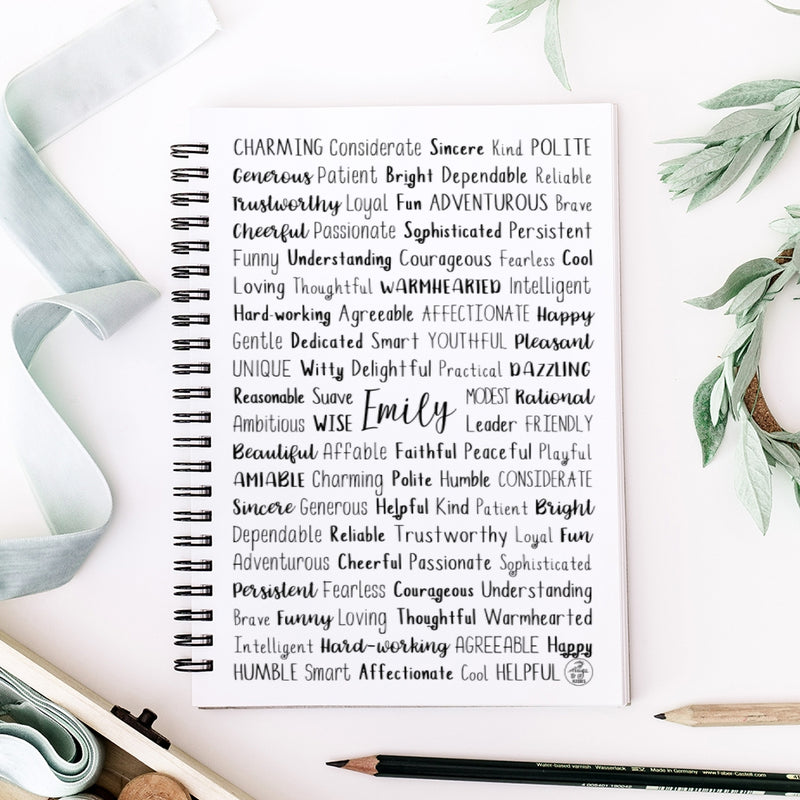 CHARMING Considerate Sincere Kind POLITE
Generous Patient Bright Dependable Reliable
Trustworthy Loyal Fun ADVENTUROUS Brave
Cheerful Passionate Sophisticated Persistent
Funny Understanding Courageous Fearless Cool
Loving Thoughtful WARMHEARTED Intelligent
Hard-working Agreeable AFFECTIONATE Happy
Gentle Dedicated Smart YOUTHFUL Pleasant
UNIQUE Witty Delightful Practical DAZZLING
Reasonable Suave MODEST Rational
Emily
Ambitious WISE Leader FRIENDLY
Beautiful Affable Faithful Peaceful Playful
AMIABLE Charming Polite Humble CONSIDERATE
Sincere Generous Helpful Kind Patient Bright
Dependable Reliable Trustworthy Loyal Fun
Adventurous Cheerful Passionate Sophisticated
Persistent Fearless Courageous Understanding
Brave Funny Loving Thoughtful Warmhearted
Intelligent Hard-working AGREEABLE Happy
HUMBLE Smart Affectionate Cool HELPFUL
Water-based varnish Wasserlack Made in Germany www.Faber-Castell.com